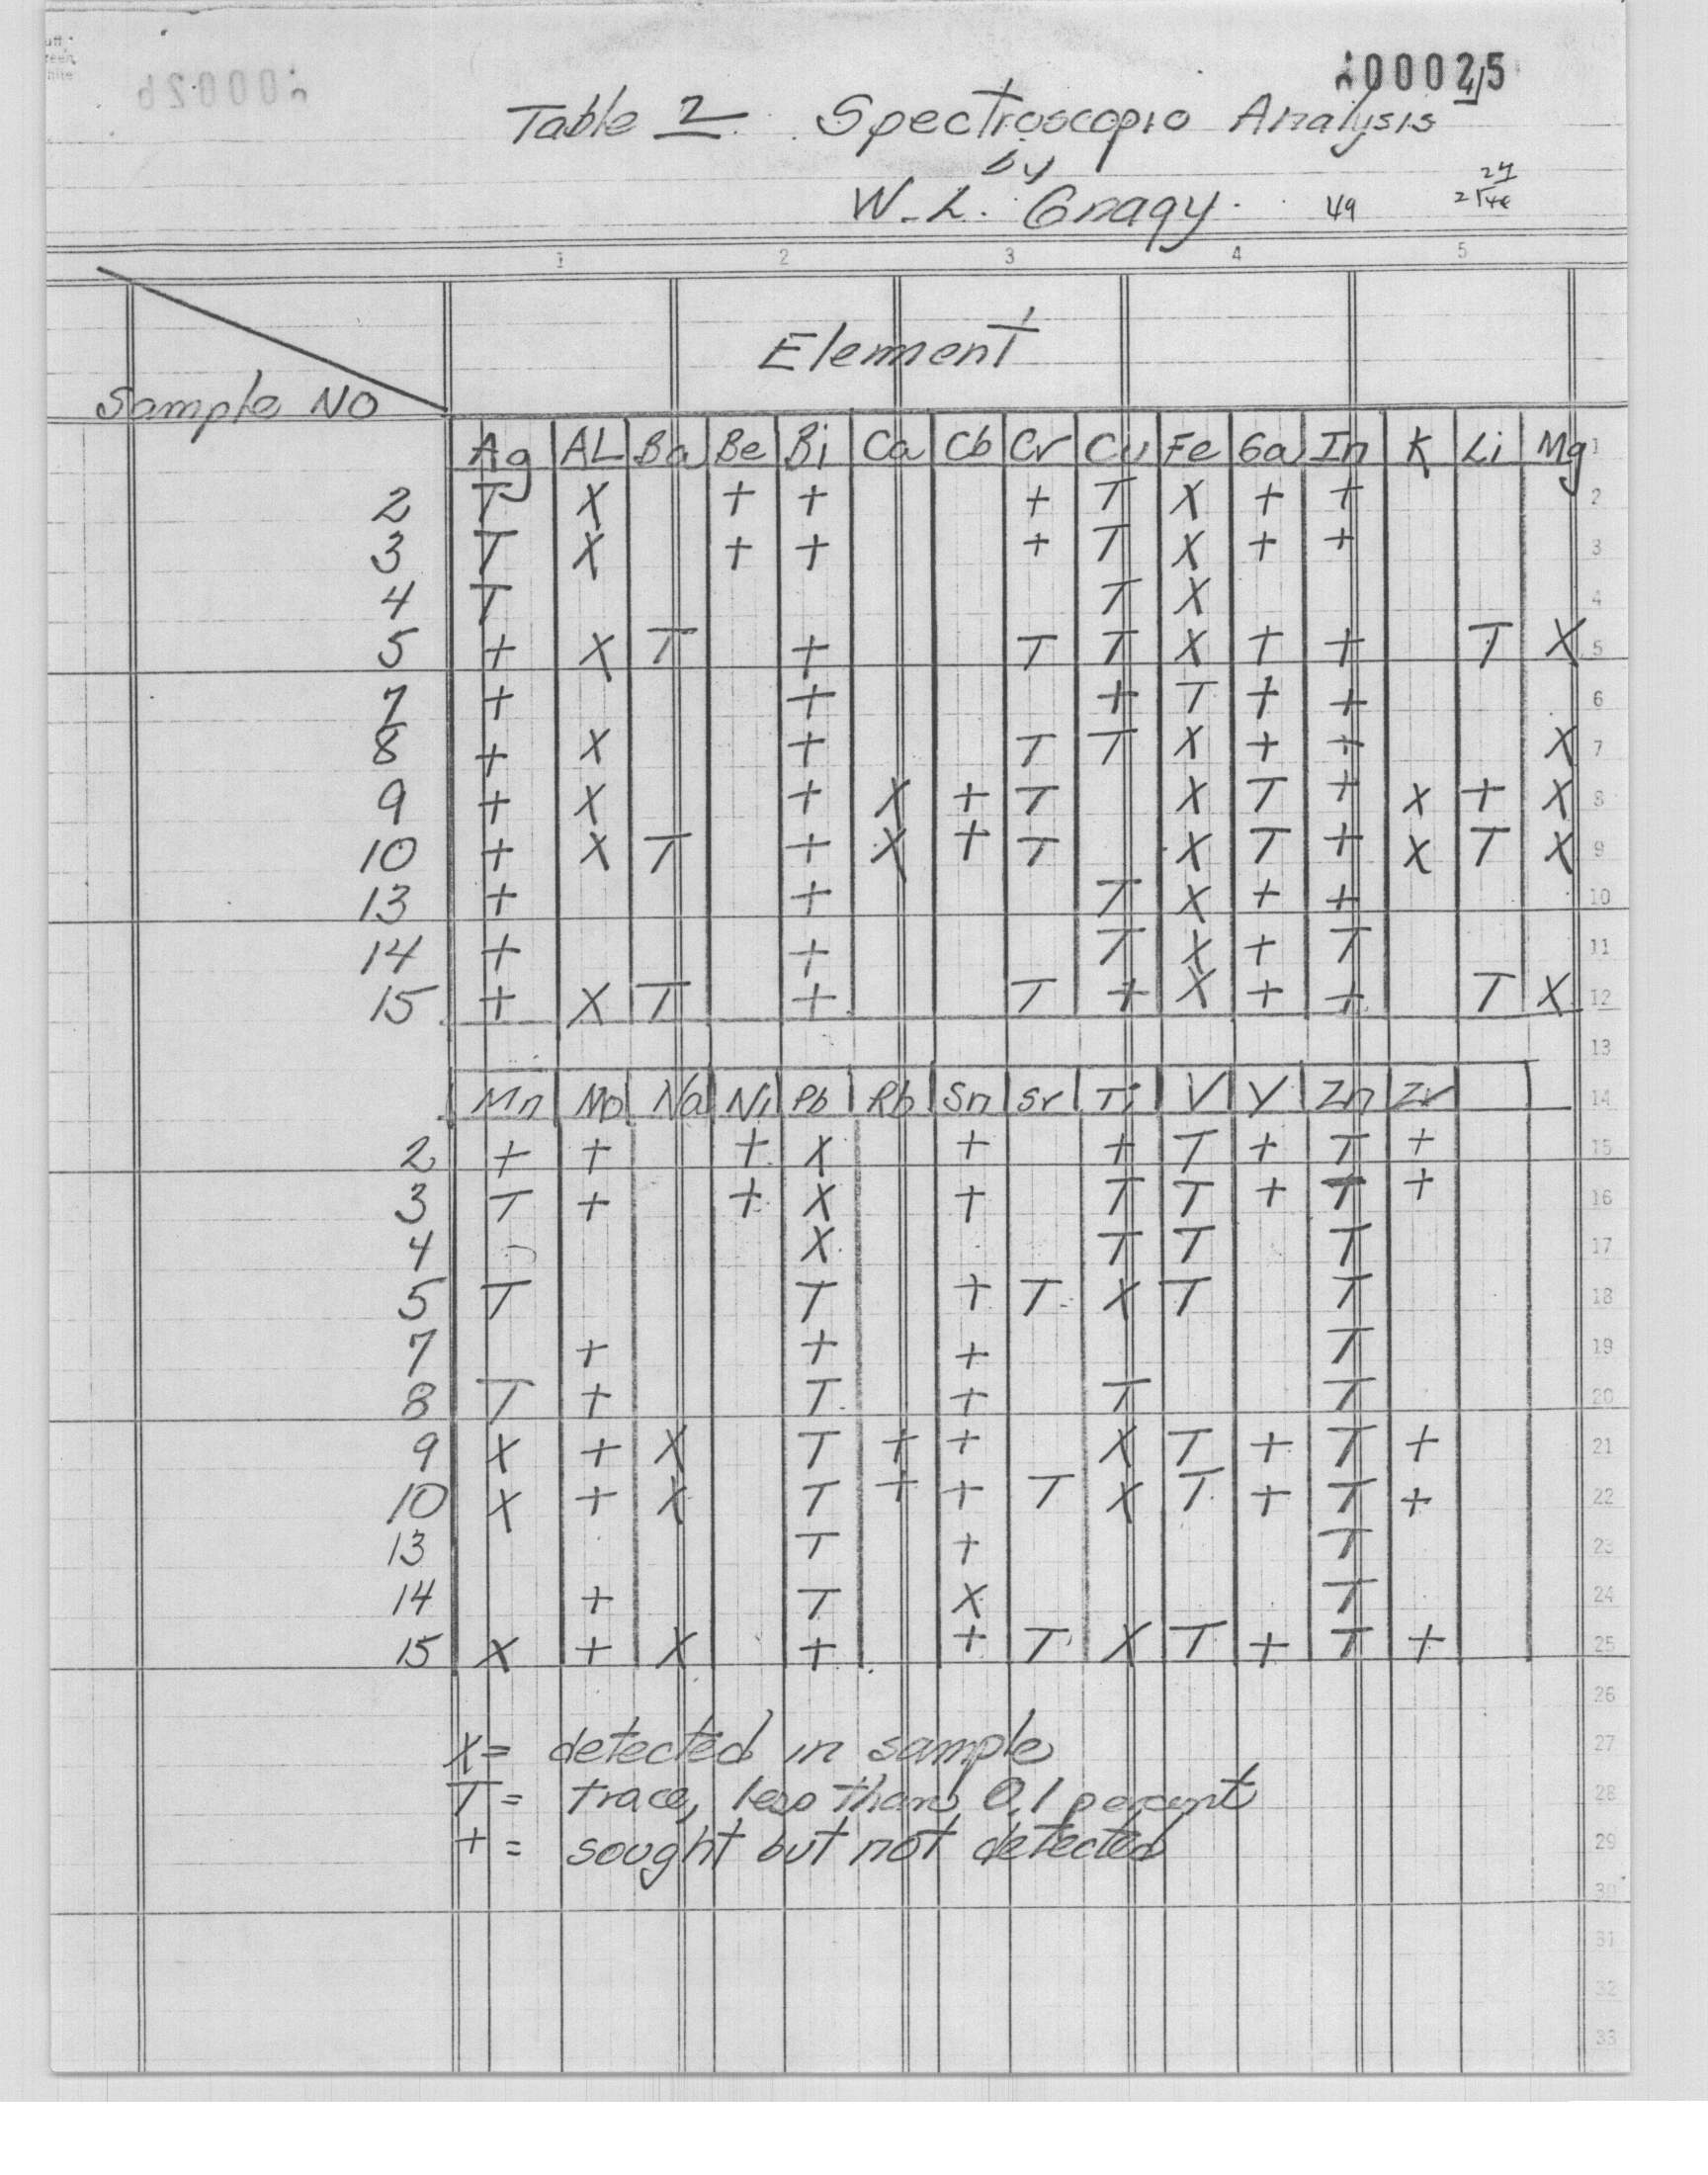 000025
Table 2 Spectroscopic Analysis
by
W. L. Gnagy. 49 24
1 2 3 4 5
Element
Sample NO
Ag AL Ba Be Bi Ca Cb Cr Cu Fe Ga In K Li Mg 1
2 T X + + + T X + + 2
3 T X + + + T X + + 3
4 T T X 4
5 + X T + T T X + + T X 5
7 + + + T + + 6
8 + X + T T X + + X 7
9 + X + X + T X T + X + X 8
10 + X T + X + T X T + X T X 9
13 + + T X + + 10
14 + + T X + T 11
15 + X T + T + X + + T X 12
13
Mn Mo Na Ni Pb Rb Sn Sr Ti V Y Zn Zr 14
2 + + + X + + T + T + 15
3 T + + X + T T + T + 16
4 X T T T 17
5 T T + T X T T 18
7 + + + T 19
8 T + T + T T 20
9 X + X T + + X T + T + 21
10 X + X T + + T X T + T + 22
13 T + T 23
14 + T X T 24
15 X + X + + T X T + T + 25
26
X = detected in sample 27
T = trace, less than 0.1 percent 28
+ = sought but not detected 29
30
31
32
33